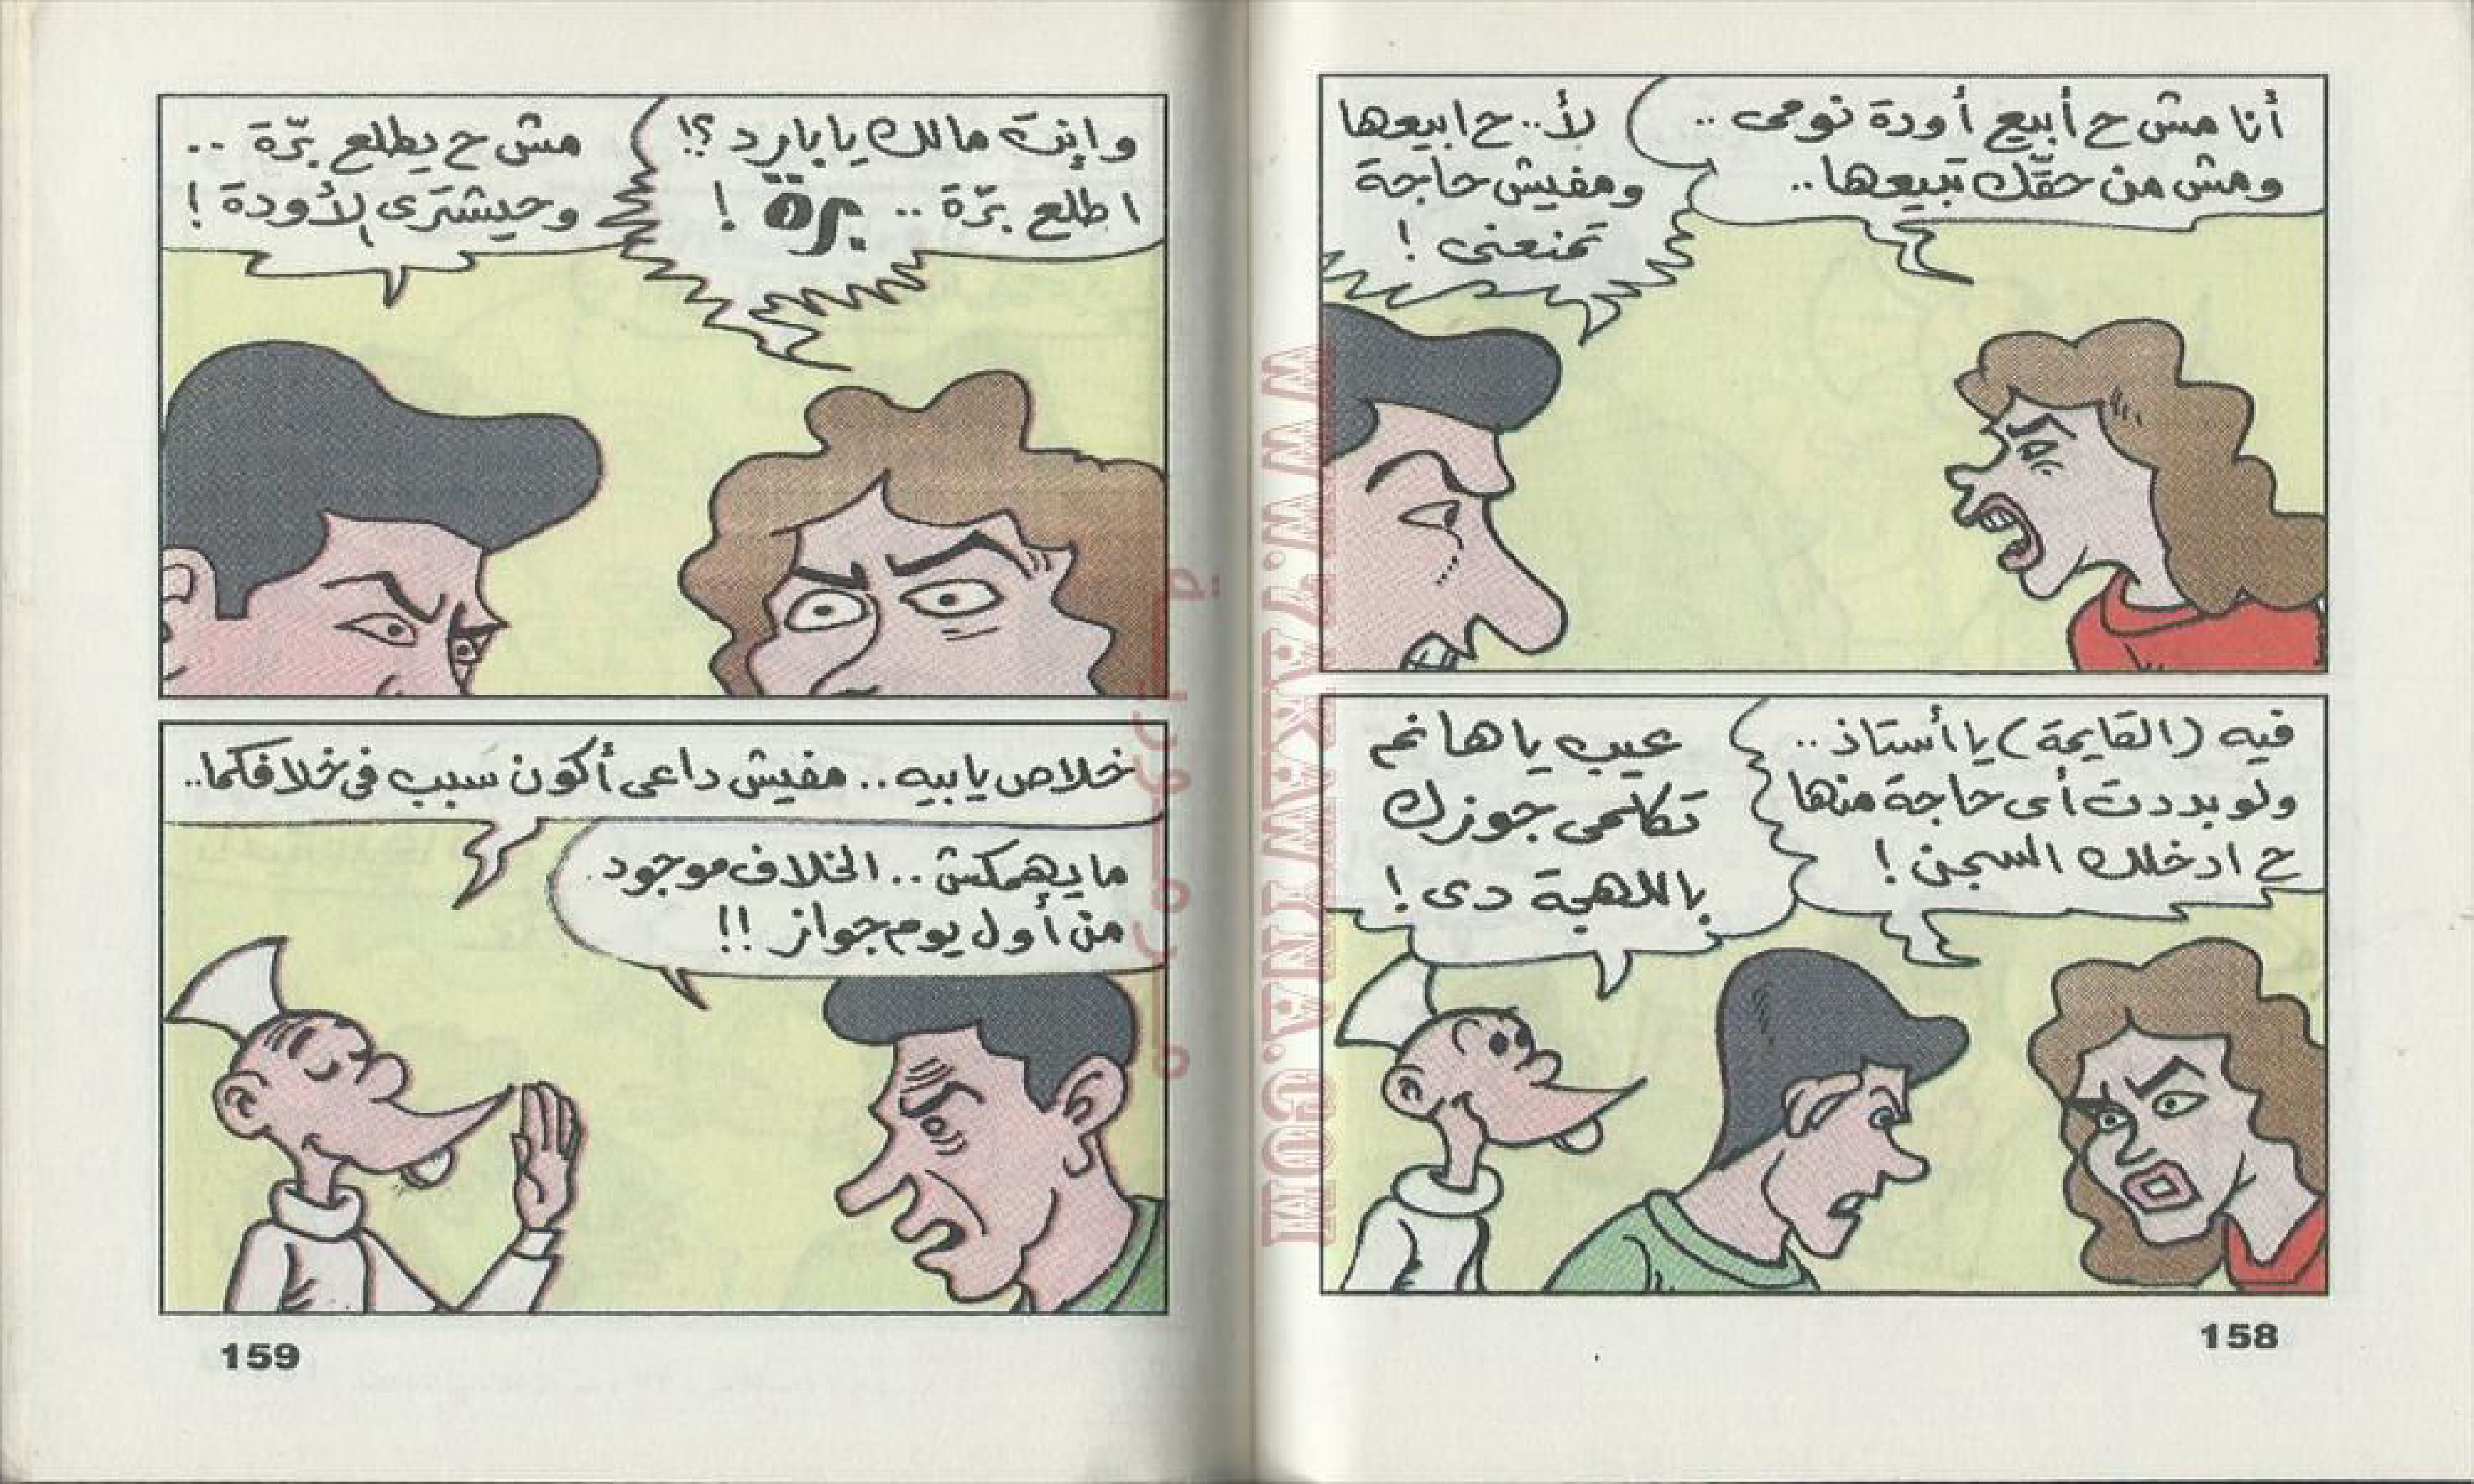 أنا مش ح أبيع أودة نومى ..
ومش من حقّك تبيعها..
لأ.. ح ابيعها
ومفيش حاجة
تمنعنى !
فيه (القايمة) يا أستاذ..
ولو بددت أى حاجة منها
ح ادخلك السجن !
عيب يا هانم
تكلمى جوزك
باللهجة دى !
158
وإنت مالك يا بارد ؟!
اطلع برّة .. برة !
مش ح يطلع برّة ..
وحيشترى الأودة !
خلاص يا بيه .. مفيش داعى أكون سبب فى خلافكما..
ما يهمكش .. الخلاف موجود
من أول يوم جواز !!
159
WWW.ZAKAWYNA.COM